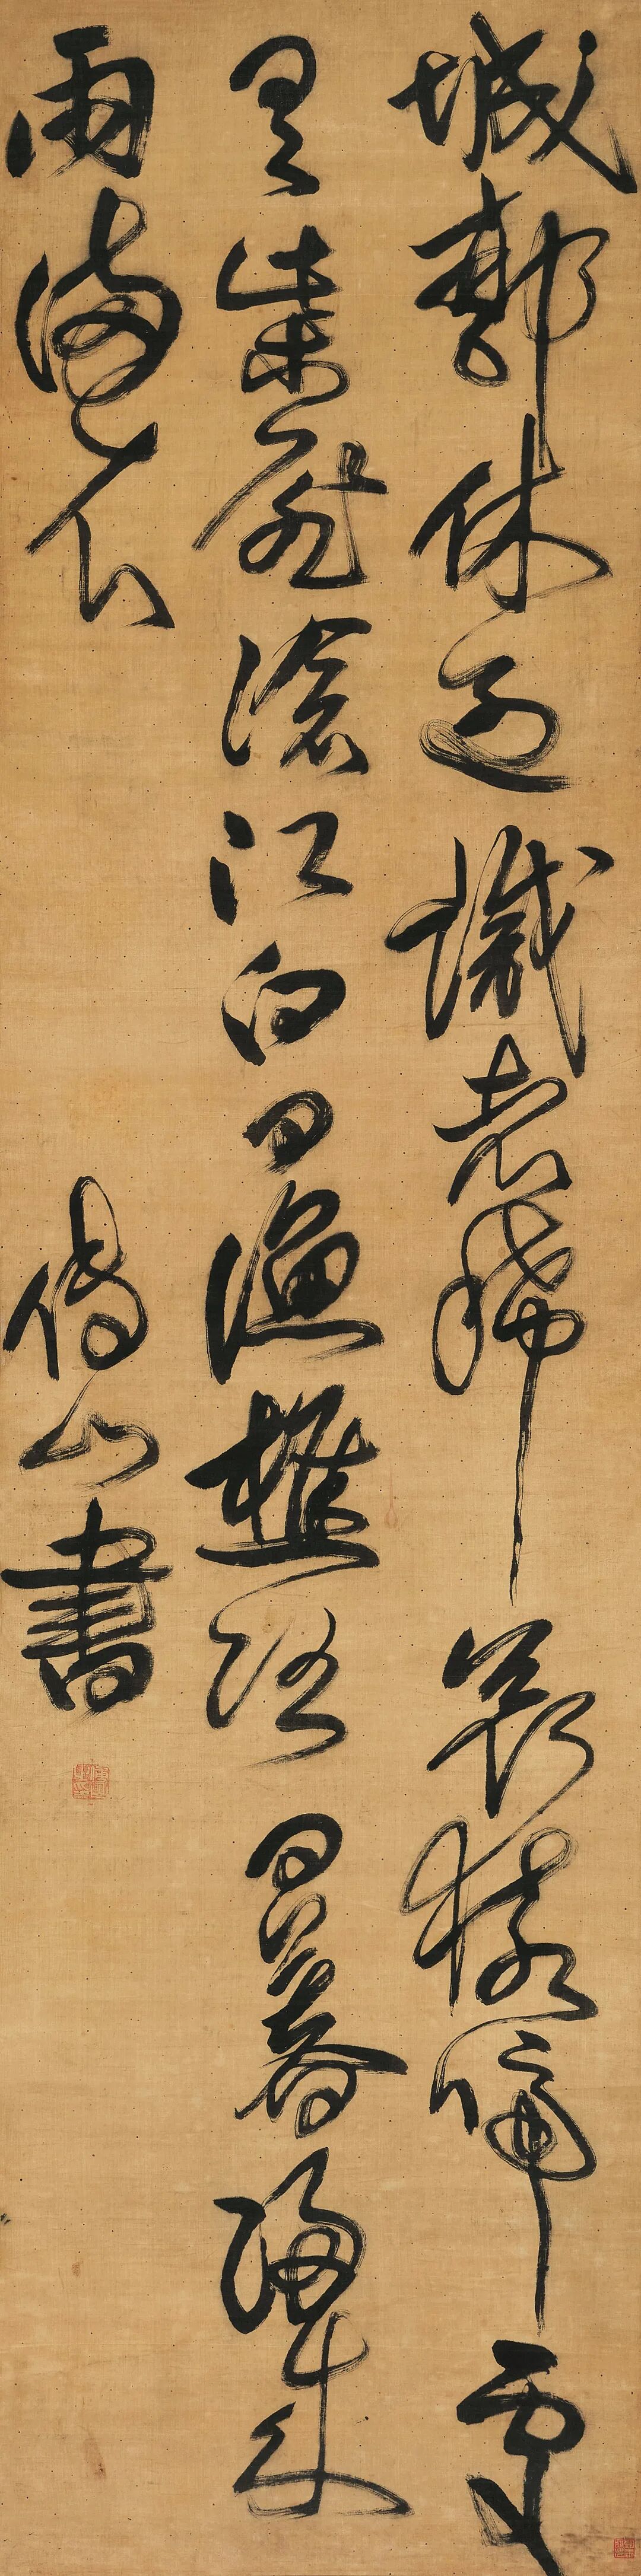 城郭休過識者稀哀猿啼處
見柴扉滄江白日漁樵路日暮歸來
雨滿衣 傅山書